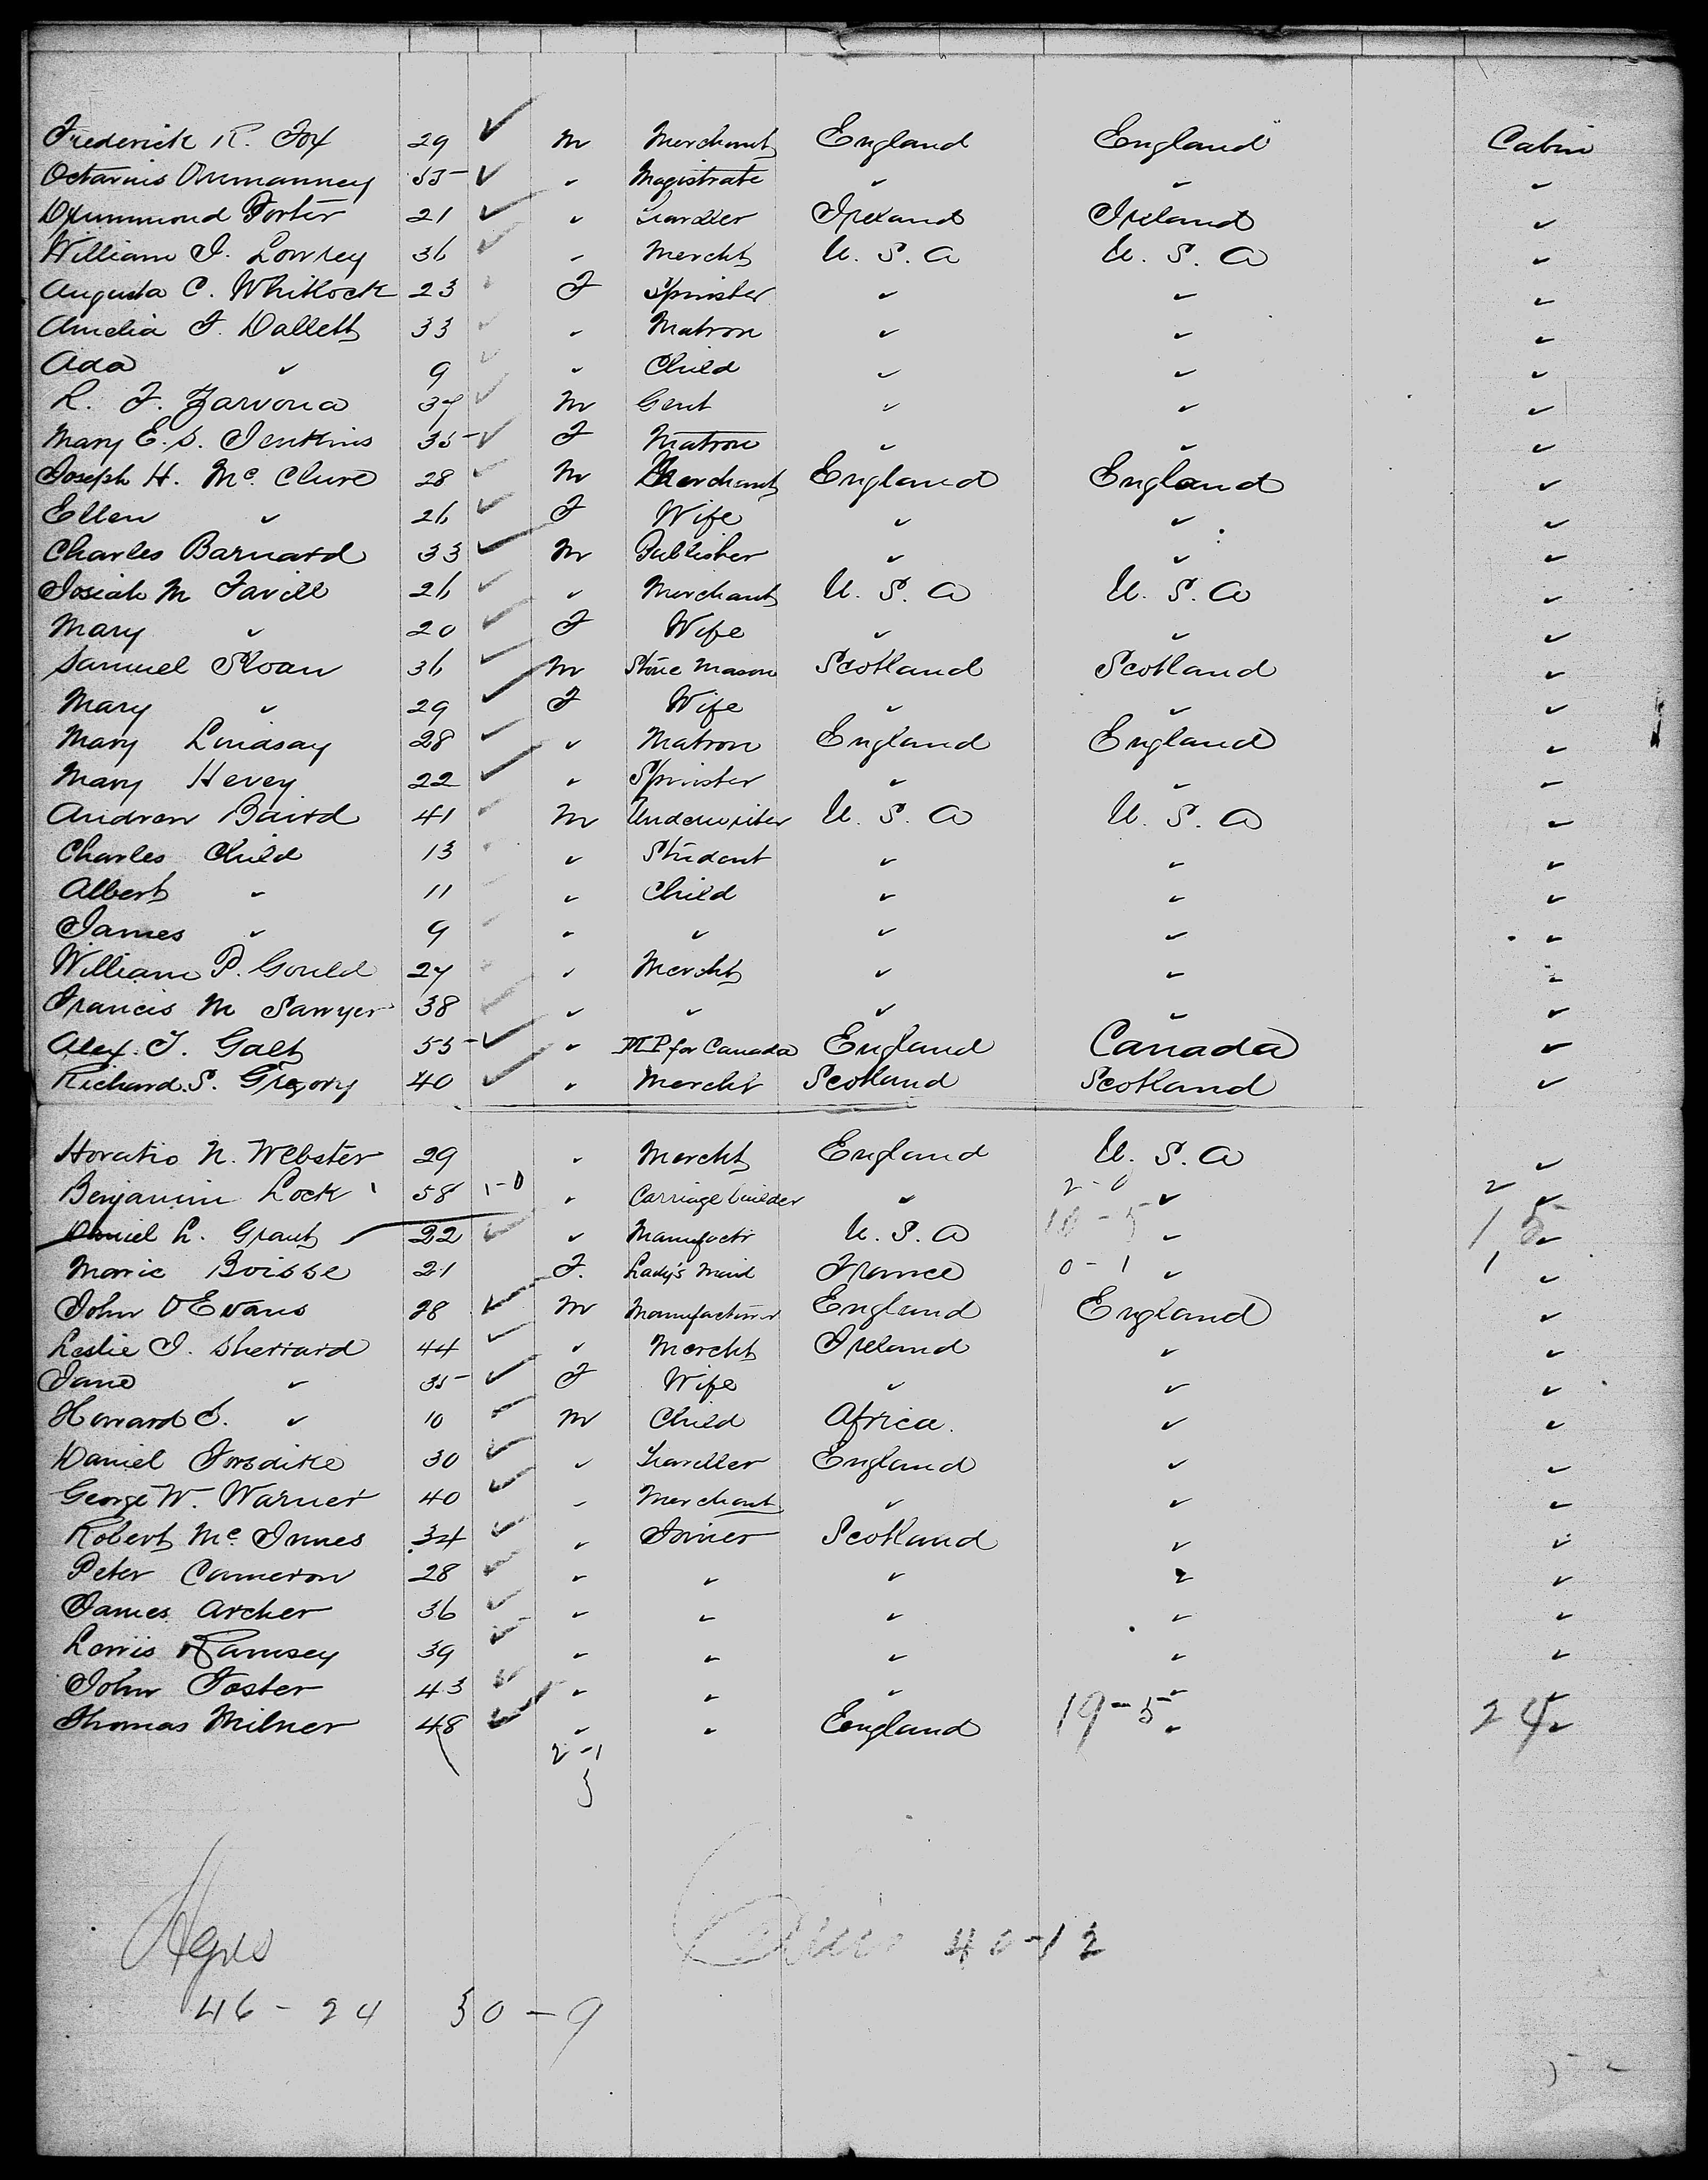 Frederick R. Fox 29 ✓ M Merchant England England Cabin
Octavius Ommanney 55 ✓ ✓ Magistrate ✓ ✓ ✓
Drummond Porter 21 ✓ ✓ Ireland Ireland ✓
William J. Lowrey 36 ✓ ✓ Mercht U. S. A U. S. A ✓
Augusta C. Whitlock 23 F Spinster ✓ ✓ ✓
Amelia F. Dallett 33 ✓ ✓ Matron ✓ ✓ ✓
Ada ✓ 9 ✓ ✓ Child ✓ ✓ ✓
R. F. Zarvona 37 ✓ M Gent ✓ ✓ ✓
Mary E. S. Jenkins 35 ✓ F Matron ✓ ✓ ✓
Joseph H. Mc. Clure 28 ✓ M Merchant England England ✓
Ellen ✓ 26 ✓ F Wife ✓ ✓ ✓
Charles Barnard 33 ✓ M Publisher ✓ ✓ ✓
Josiah M Favill 26 ✓ ✓ Merchant U. S. A U. S. A ✓
Mary ✓ 20 ✓ F Wife ✓ ✓ ✓
Samuel Sloan 36 ✓ M Stone Mason Scotland Scotland ✓
Mary ✓ 29 ✓ F Wife ✓ ✓ ✓
Mary Lindsay 28 ✓ ✓ Matron England England ✓
Mary Hevey 22 ✓ ✓ Spinster ✓ ✓ ✓
Andrew Baird 41 M Underwriter U. S. A U. S. A ✓
Charles Child 13 ✓ Student ✓ ✓ ✓
Albert ✓ 11 ✓ Child ✓ ✓ ✓
James ✓ 9 ✓ ✓ ✓ ✓ ✓
William P. Gould 27 ✓ Mercht ✓ ✓ ✓
Francis M Sawyer 38 ✓ ✓ ✓ ✓ ✓ ✓
Alex. T. Galt 55 ✓ ✓ MP for Canada England Canada ✓
Richard. S. Gregory 40 ✓ ✓ Mercht Scotland Scotland ✓
Horatio N. Webster 29 ✓ Mercht England U. S. A ✓
Benjamin Lock 58 1-0 ✓ Carriage builder ✓ 2-0 ✓ 2 ✓
Daniel L. Grant 22 ✓ ✓ Manufactr U. S. A ✓ 15 ✓
Marie Boisse 21 F. Lady's Maid France 0-1 ✓ 1 ✓
John O Evans 28 ✓ M Manufacturer England England ✓
Leslie J. Sherrard 44 ✓ ✓ Mercht Ireland ✓ ✓
Jane ✓ 35 ✓ F Wife ✓ ✓ ✓
Howard J. ✓ 10 ✓ M Child Africa. ✓ ✓
Daniel Forsdike 30 ✓ ✓ Traveller England ✓ ✓
George W. Warner 40 ✓ ✓ Merchant ✓ ✓ ✓
Robert Mc. Innes 34 ✓ ✓ Joiner Scotland ✓ ✓
Peter Cameron 28 ✓ ✓ ✓ ✓ ✓ ✓
James Archer 36 ✓ ✓ ✓ ✓ ✓ ✓
Lewis Ramsey 39 ✓ ✓ ✓ ✓ ✓ ✓
John Foster 43 ✓ ✓ ✓ ✓ ✓ ✓
Thomas Milner 48 ✓ ✓ ✓ England 19-5 ✓ 24 ✓
2-1
3
46 - 24 30 - 9
40-12